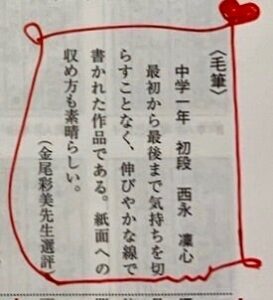 〈毛筆〉
中学一年 初段 西永 凜心
最初から最後まで気持ちを切
らすことなく、伸びやかな線で
書かれた作品である。紙面への
収め方も素晴らしい。
（金尾彩美先生選評）